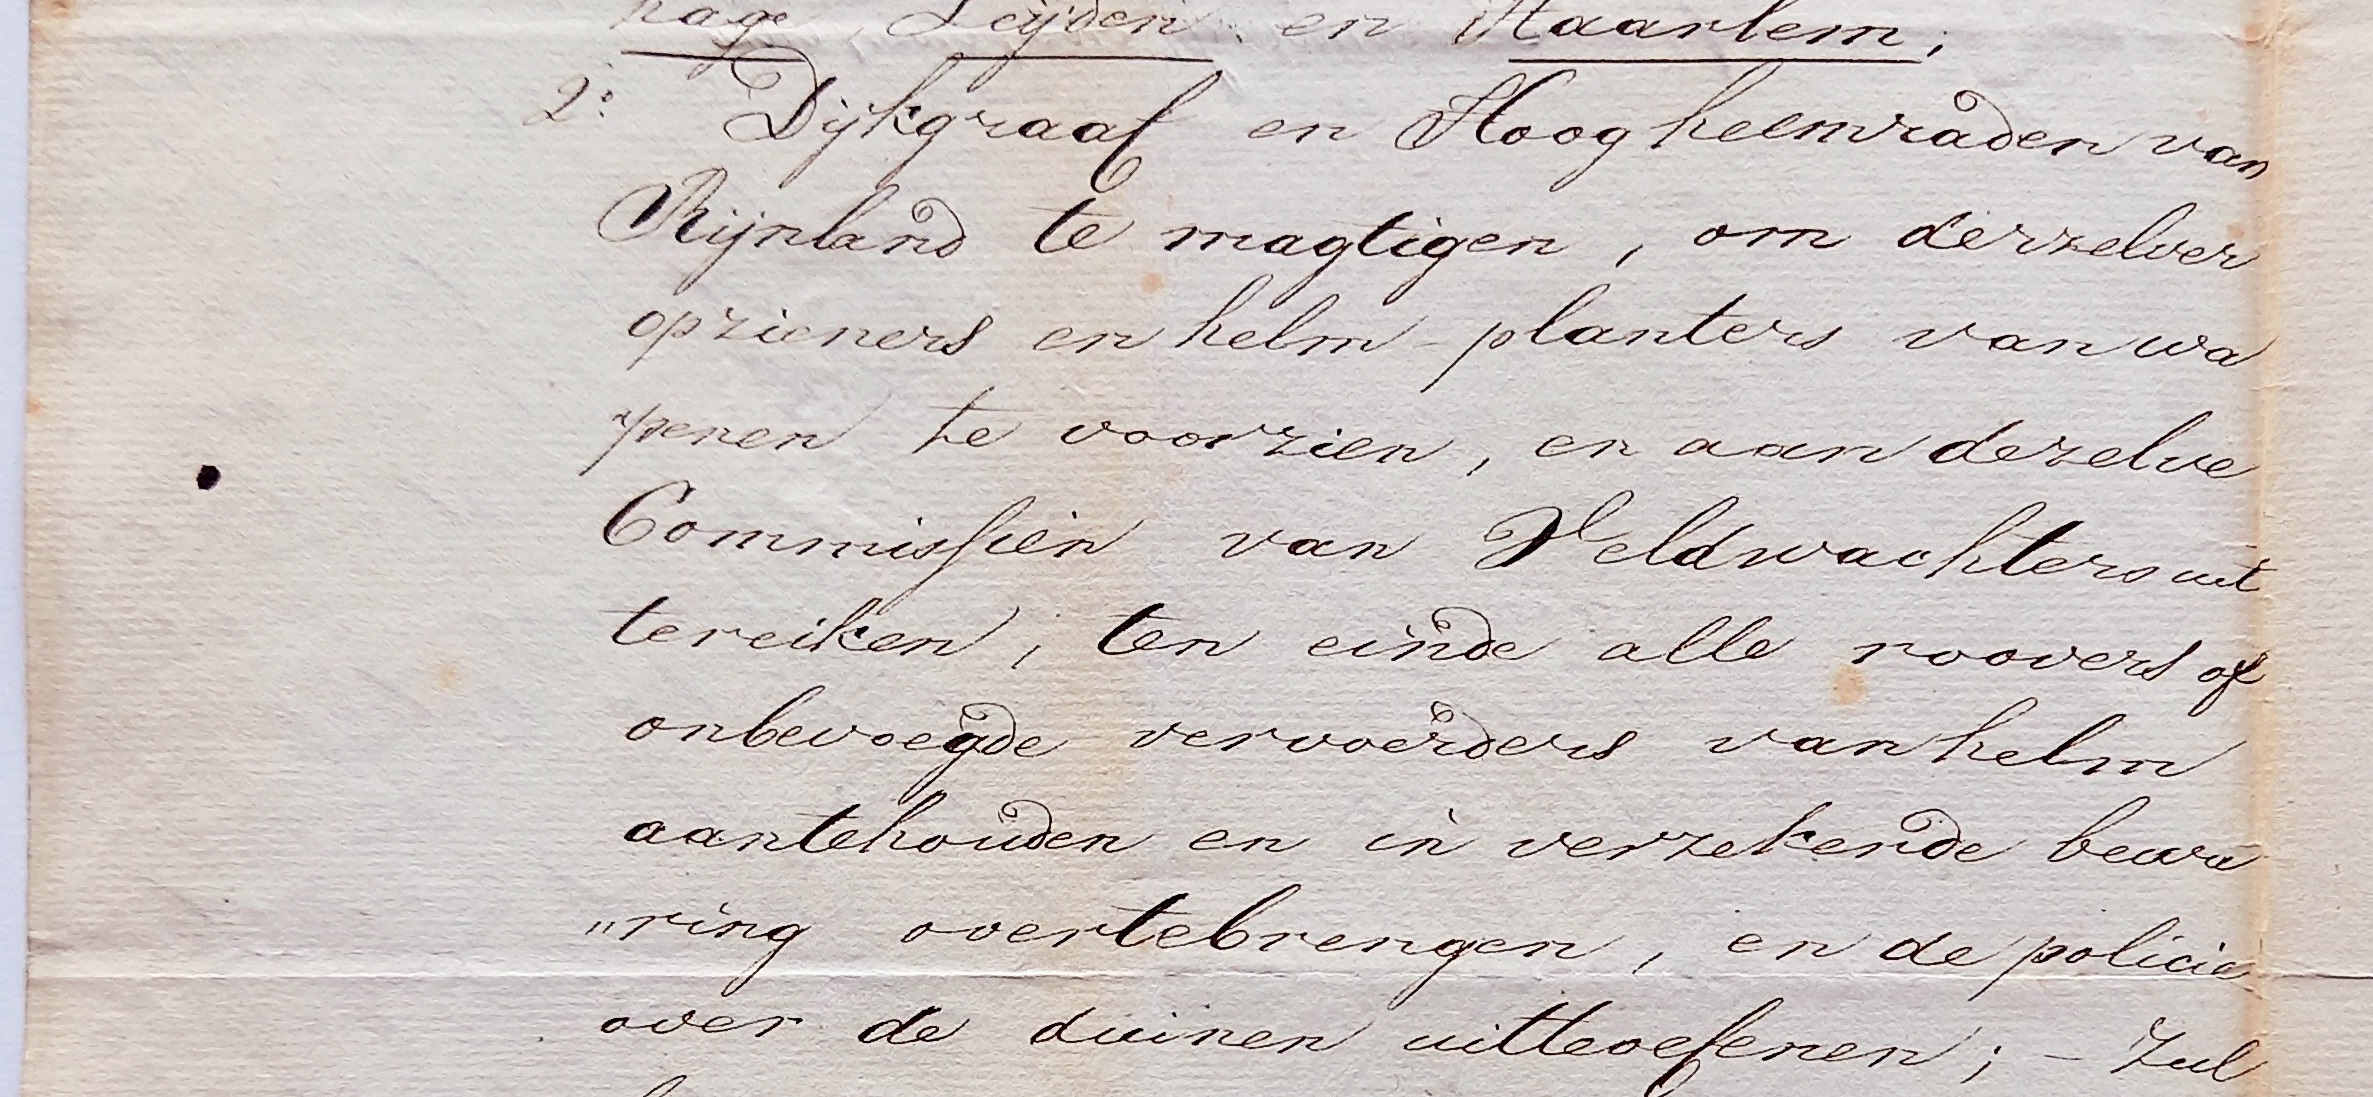 hage, Leijden en Haarlem;
2: Dijkgraaf en Hoogheemraden van
Rijnland te magtigen, om derzelver
opzieners en helm-planters van wa
penen te voorzien, en aan dezelve
Commissien van Veldwachters uit
tereiken, ten einde alle roovers of
onbevoegde vervoerders van helm
aantehouden en in verzekerde bewa
"ring overtebrengen, en de policie
over de duinen uitteoefenen; - Zul